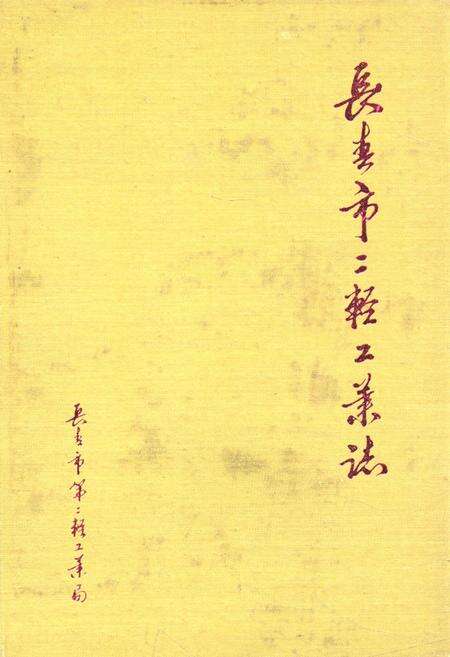 長春市二輕工業誌
長春市第二轻工業局